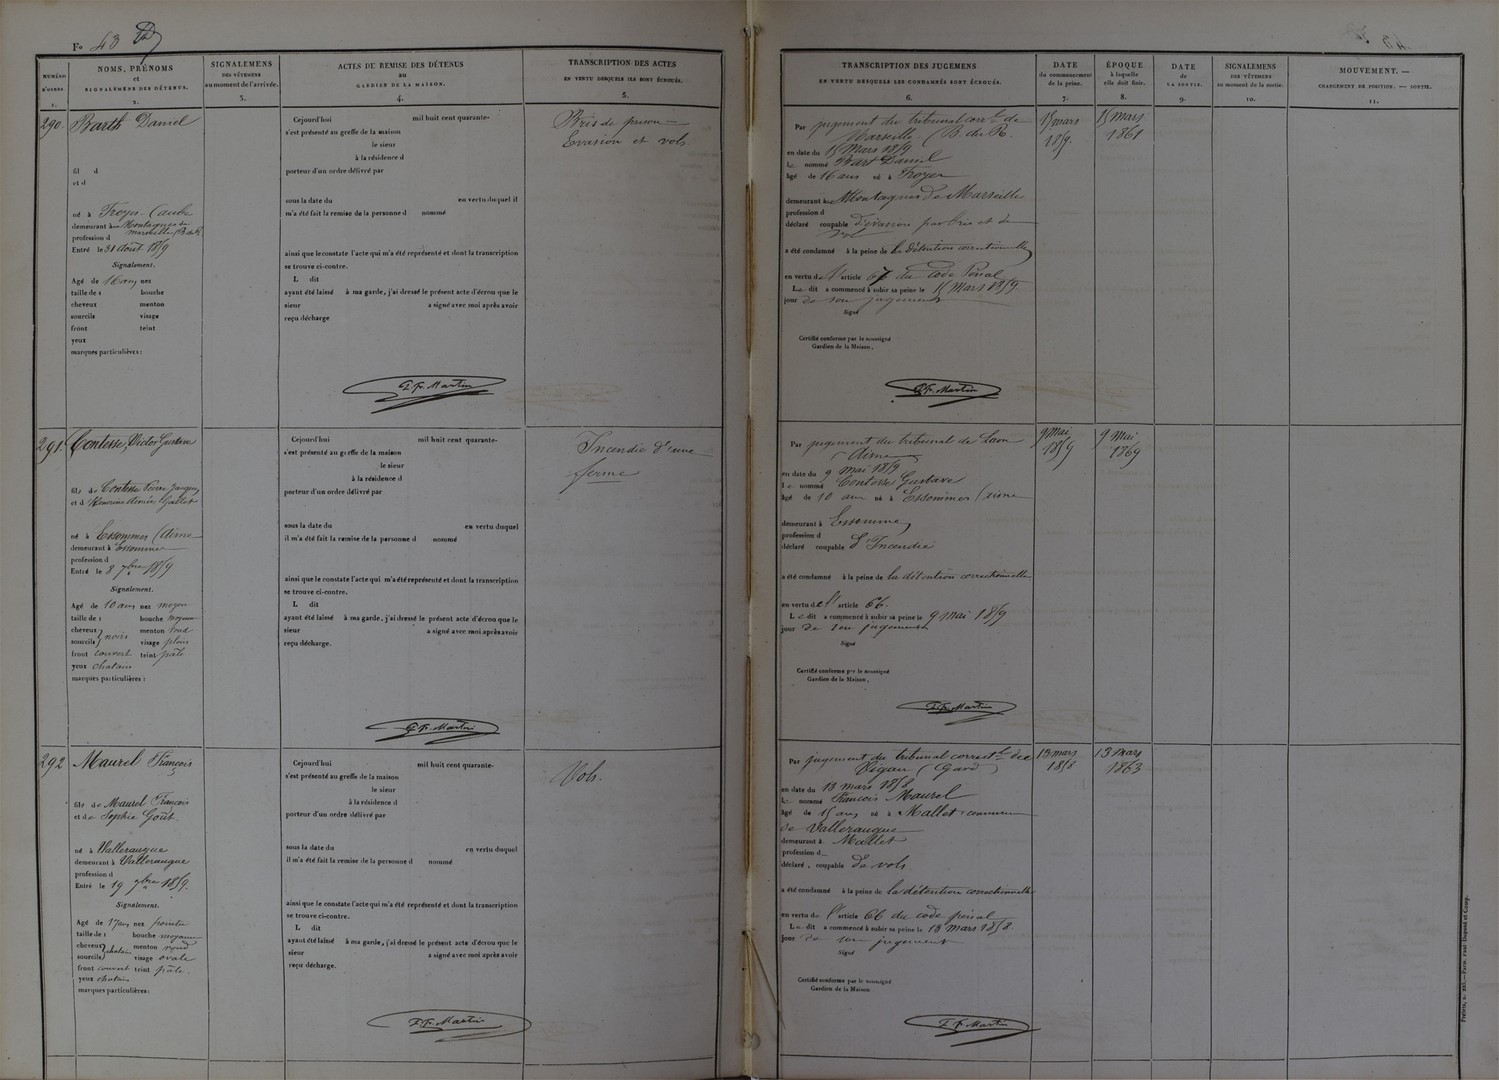 Fº 43
NUMÉRO D'ORDRE. 1.
NOMS, PRÉNOMS et SIGNALÉMENS DES DÉTENUS. 2.
SIGNALÉMENS DES VÊTEMENS au moment de l'arrivée. 3.
ACTES DE REMISE DES DÉTENUS au GARDIEN DE LA MAISON. 4.
TRANSCRIPTION DES ACTES EN VERTU DESQUELS ILS SONT ÉCROUÉS. 5.
TRANSCRIPTION DES JUGEMENS EN VERTU DESQUELS LES CONDAMNÉS SONT ÉCROUÉS. 6.
DATE du commencement de la peine. 7.
ÉPOQUE à laquelle elle doit finir. 8.
DATE de LA SORTIE. 9.
SIGNALÉMENS DES VÊTEMENS au moment de la sortie. 10.
MOUVEMENT. — CHANGEMENT DE POSITION. — SORTIE. 11.
290. Barth Daniel
fil d
et d
né à Troyes (aube
demeurant à Montagnes de
marseille (B. du R.
profession d
Entré le 31 Août 1859
Signalement.
Agé de 16 ans nez
taille de 1 bouche
cheveux menton
sourcils visage
front teint
yeux
marques particulières :
Cejourd'hui mil huit cent quarante-
s'est présenté au greffe de la maison
le sieur
à la résidence d
porteur d'un ordre délivré par
sous la date du en vertu duquel il
m'a été fait la remise de la personne d nommé
ainsi que le constate l'acte qui m'a été représenté et dont la transcription
se trouve ci-contre.
L dit
ayant été laissé à ma garde, j'ai dressé le présent acte d'écrou que le
sieur a signé avec moi après avoir
reçu décharge
P. F. Martin
Bris de prison —
Evasion et vols
Par jugement du tribunal corr.el de
Marseille (B. du R.
en date du 15 Mars 1859
Le nommé Bart Daniel
âgé de 16 ans né à Troyes
demeurant à Montagnes de Marseille
profession d
déclaré coupable d'évasion par bris et de
vol
a été condamné à la peine de la détention correctionnelle
en vertu de l'article 67 du Code Pénal
Le dit a commencé à subir sa peine le 15 Mars 1859
jour de son jugement
Signé
Certifié conforme par le soussigné
Gardien de la Maison,
P. F. Martin
15 mars
1859.
15 mars
1861
291. Contesse, Victor Gustave
fils de Contesse Pierre Jacques
et d
né à Essommes (Aisne
demeurant à Essommes
profession d
Entré le 8 7bre 1859
Signalement.
Agé de 10 ans nez moyen
taille de 1 bouche moyenne
cheveux } noirs menton rond
sourcils visage plein
front couvert teint pâle
yeux chatain
marques particulières :
Cejourd'hui mil huit cent quarante-
s'est présenté au greffe de la maison
le sieur
à la résidence d
porteur d'un ordre délivré par
sous la date du en vertu duquel
il m'a été fait la remise de la personne d nommé
ainsi que le constate l'acte qui m'a été représenté et dont la transcription
se trouve ci-contre.
L dit
ayant été laissé à ma garde, j'ai dressé le présent acte d'écrou que le
sieur a signé avec moi après avoir
reçu décharge.
P. F. Martin
Incendie d'une
ferme
Par jugement du tribunal de Laon
(Aisne)
en date du 9 mai 1859
Le nommé Contesse Gustave
âgé de 10 ans né à Essommes (aisne
demeurant à Essommes
profession d
déclaré coupable d'Incendie
a été condamné à la peine de la détention correctionnelle
en vertu de l'article 66.
Le dit a commencé à subir sa peine le 9 Mai 1859
jour de son jugement
Signé
Certifié conforme par le soussigné
Gardien de la Maison,
P. F. Martin
9 Mai
1859
9 Mai
1869
292 Maurel François
fils de Maurel François
et de Sophie Goût
né à Valleraugue
demeurant à Valleraugue
profession d
Entré le 19 9bre 1859.
Signalement.
Agé de 17 ans nez pointu
taille de 1 bouche moyenne
cheveux } chatain menton rond
sourcils visage ovale
front couvert teint pâle.
yeux chatain
marques particulières :
Cejourd'hui mil huit cent quarante-
s'est présenté au greffe de la maison
le sieur
à la résidence d
porteur d'un ordre délivré par
sous la date du en vertu duquel
il m'a été fait la remise de la personne d nommé
ainsi que le constate l'acte qui m'a été représenté et dont la transcription
se trouve ci-contre.
L dit
ayant été laissé à ma garde, j'ai dressé le présent acte d'écrou que le
sieur a signé avec moi après avoir
reçu décharge.
P. F. Martin
Vols.
Par jugement du tribunal correct.el de
Vigan (Gard)
en date du 13 mars 1858
Le nommé François Maurel
âgé de 15 ans né à Mallet, commune
de Valleraugue
demeurant à Mallet
profession d
déclaré, coupable de vols
a été condamné à la peine de la détention correctionnelle
en vertu de l'article 66 du code pénal
Le dit a commencé à subir sa peine le 13 Mars 1858
jour de son jugement
Signé
Certifié conforme par le soussigné
Gardien de la Maison
P. F. Martin
13 mars
1858
13 Mars
1863